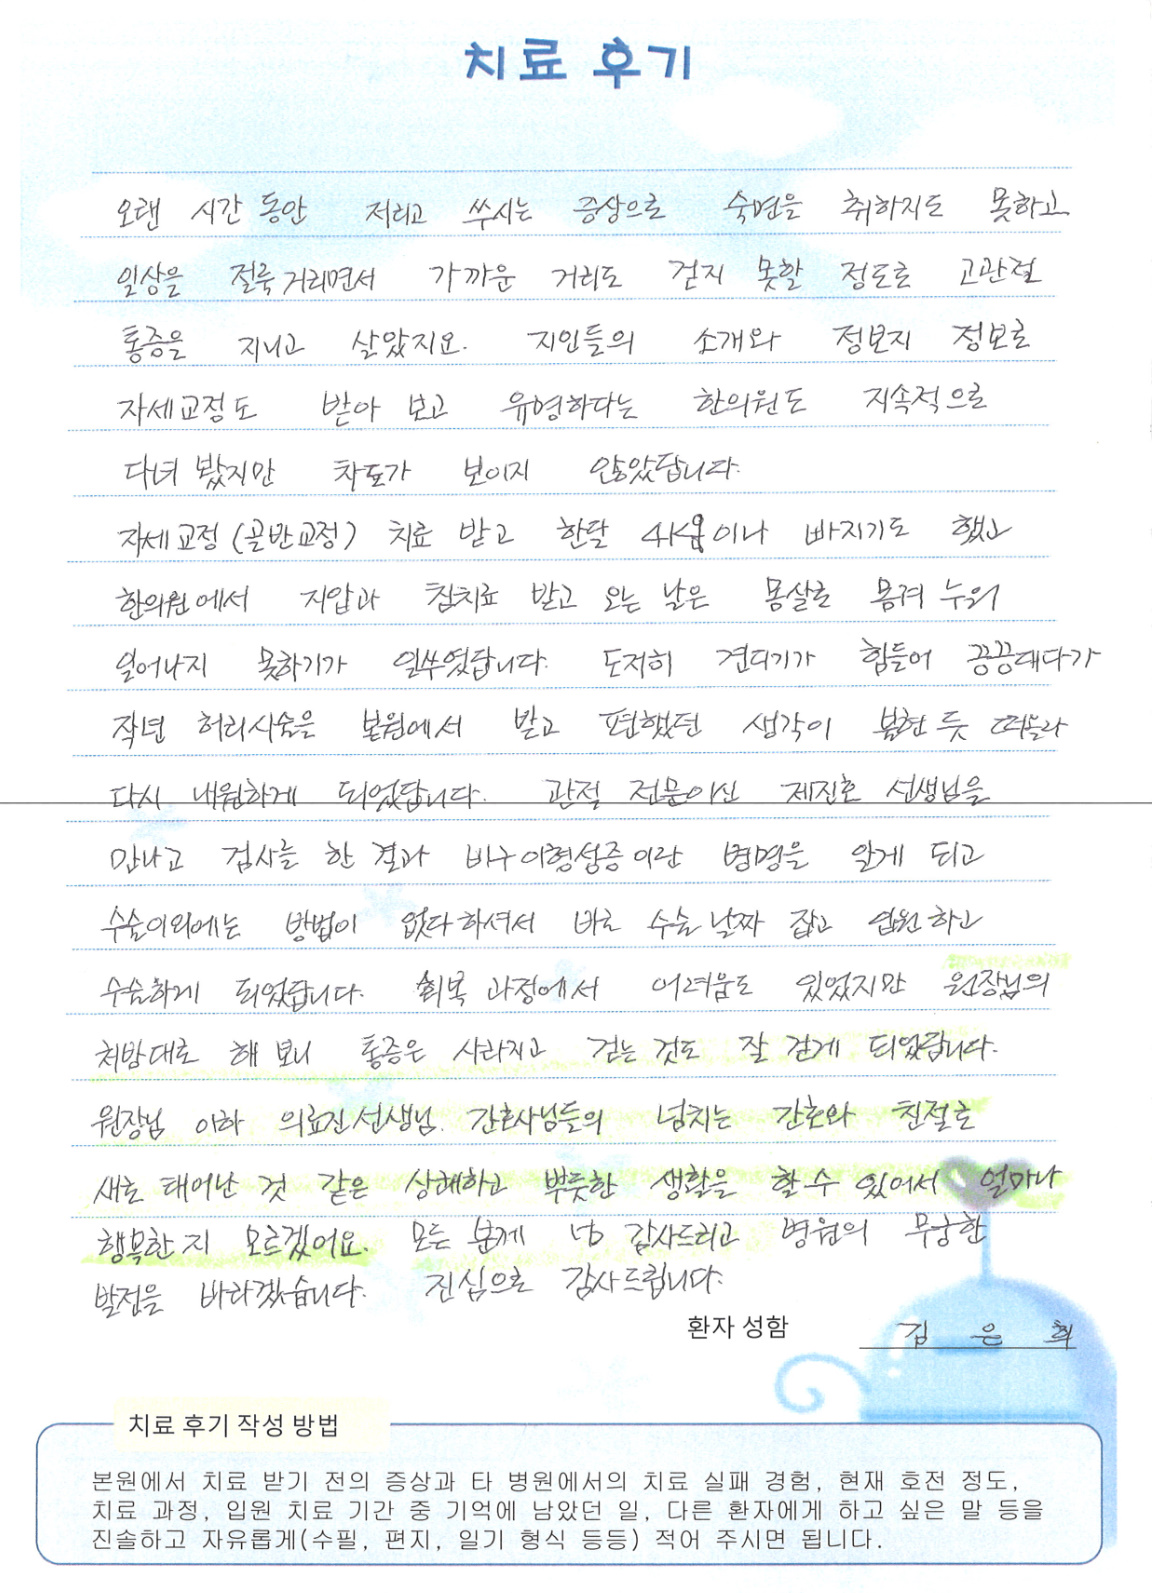 치료 후기
오랜 시간 동안 저리고 쑤시는 증상으로 숙면을 취하지도 못하고
일상을 절룩거리면서 가까운 거리도 걷지 못할 정도로 고관절
통증을 지니고 살았지요. 지인들의 소개와 정보지 정보로
자세교정도 받아 보고 유명하다는 한의원도 지속적으로
다녀 봤지만 차도가 보이지 않았답니다.
자세교정(골반교정) 치료 받고 한달 4kg이나 빠지기도 했고
한의원에서 지압과 침치료 받고 오는 날은 몸살로 몸져 누워
일어나지 못하기가 일쑤였답니다. 도저히 견디기가 힘들어 끙끙대다가
작년 허리시술을 본원에서 받고 편했던 생각이 불현듯 떠올라
다시 내원하게 되었답니다. 관절 전문이신 제진호 선생님을
만나고 검사를 한 결과 비구이형성증이란 병명을 알게 되고
수술이외에는 방법이 없다하셔서 바로 수술 날짜 잡고 입원하고
수술하게 되었답니다. 회복 과정에서 어려움도 있었지만 원장님의
처방대로 해 보니 통증은 사라지고 걷는 것도 잘 걷게 되었답니다.
원장님 이하 의료진선생님. 간호사님들의 넘치는 간호와 친절로
새로 태어난 것 같은 상쾌하고 뿌듯한 생활을 할 수 있어서 얼마나
행복한지 모르겠어요. 모든 분께 감사드리고 병원의 무궁한
발전을 바라겠습니다. 진심으로 감사드립니다.
환자 성함 김 은 희
치료 후기 작성 방법
본원에서 치료 받기 전의 증상과 타 병원에서의 치료 실패 경험, 현재 호전 정도,
치료 과정, 입원 치료 기간 중 기억에 남았던 일, 다른 환자에게 하고 싶은 말 등을
진솔하고 자유롭게(수필, 편지, 일기 형식 등등) 적어 주시면 됩니다.